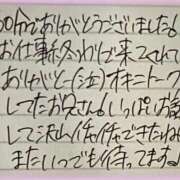 00分でありがとうございました！
お仕事終わりで来てくれて
ありがとー(泣)オキニトーク
してたお兄さん！いっぱいお話
して沢山イチャイチャできたね
またいつでも待ってます